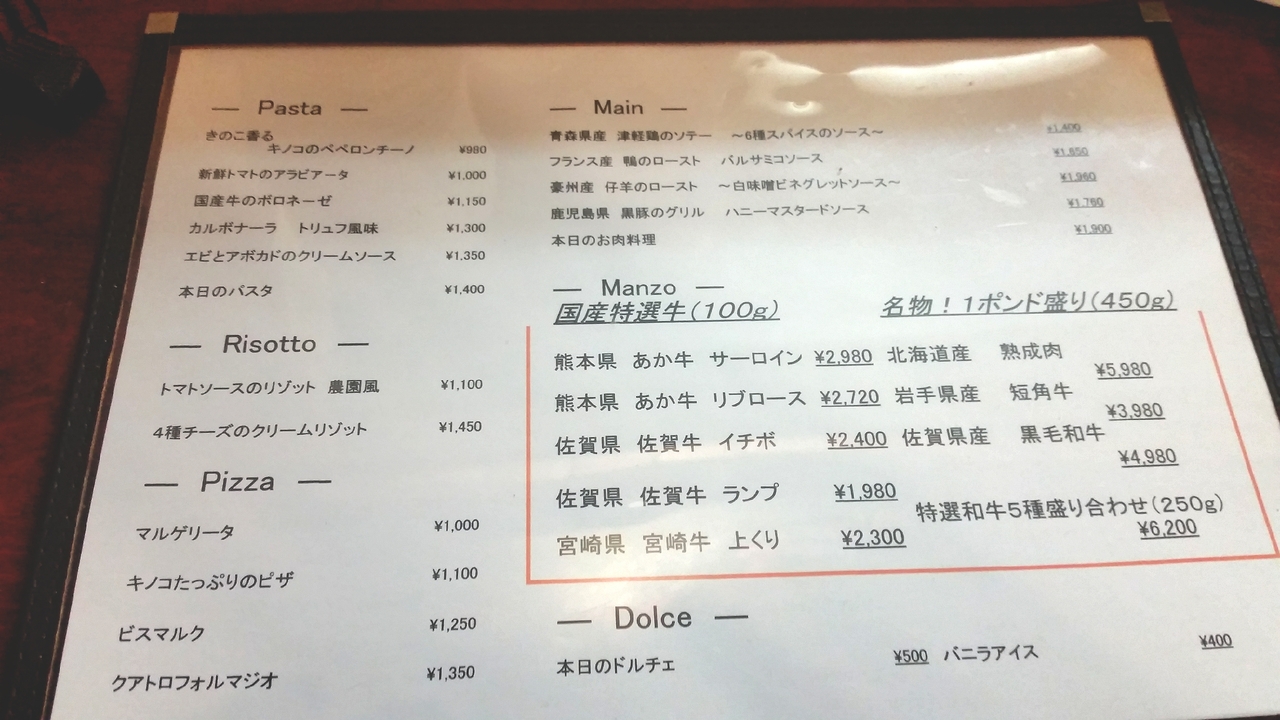 — Pasta —
きのこ香る
キノコのペペロンチーノ ¥980
新鮮トマトのアラビアータ ¥1,000
国産牛のボロネーゼ ¥1,150
カルボナーラ トリュフ風味 ¥1,300
エビとアボカドのクリームソース ¥1,350
本日のパスタ ¥1,400
— Risotto —
トマトソースのリゾット 農園風 ¥1,100
4種チーズのクリームリゾット ¥1,450
— Pizza —
マルゲリータ ¥1,000
キノコたっぷりのピザ ¥1,100
ビスマルク ¥1,250
クアトロフォルマジオ ¥1,350
— Main —
青森県産 津軽鶏のソテー ～6種スパイスのソース～ ¥1,400
フランス産 鴨のロースト バルサミコソース ¥1,850
豪州産 仔羊のロースト ～白味噌ビネグレットソース～ ¥1,960
鹿児島県 黒豚のグリル ハニーマスタードソース ¥1,760
本日のお肉料理 ¥1,900
— Manzo —
国産特選牛(100g) 名物！1ポンド盛り(450g)
熊本県 あか牛 サーロイン ¥2,980 北海道産 熟成肉 ¥5,980
熊本県 あか牛 リブロース ¥2,720 岩手県産 短角牛 ¥3,980
佐賀県 佐賀牛 イチボ ¥2,400 佐賀県産 黒毛和牛 ¥4,980
佐賀県 佐賀牛 ランプ ¥1,980 特選和牛5種盛り合わせ(250g)
宮崎県 宮崎牛 上くり ¥2,300 ¥6,200
— Dolce —
本日のドルチェ ¥500 バニラアイス ¥400